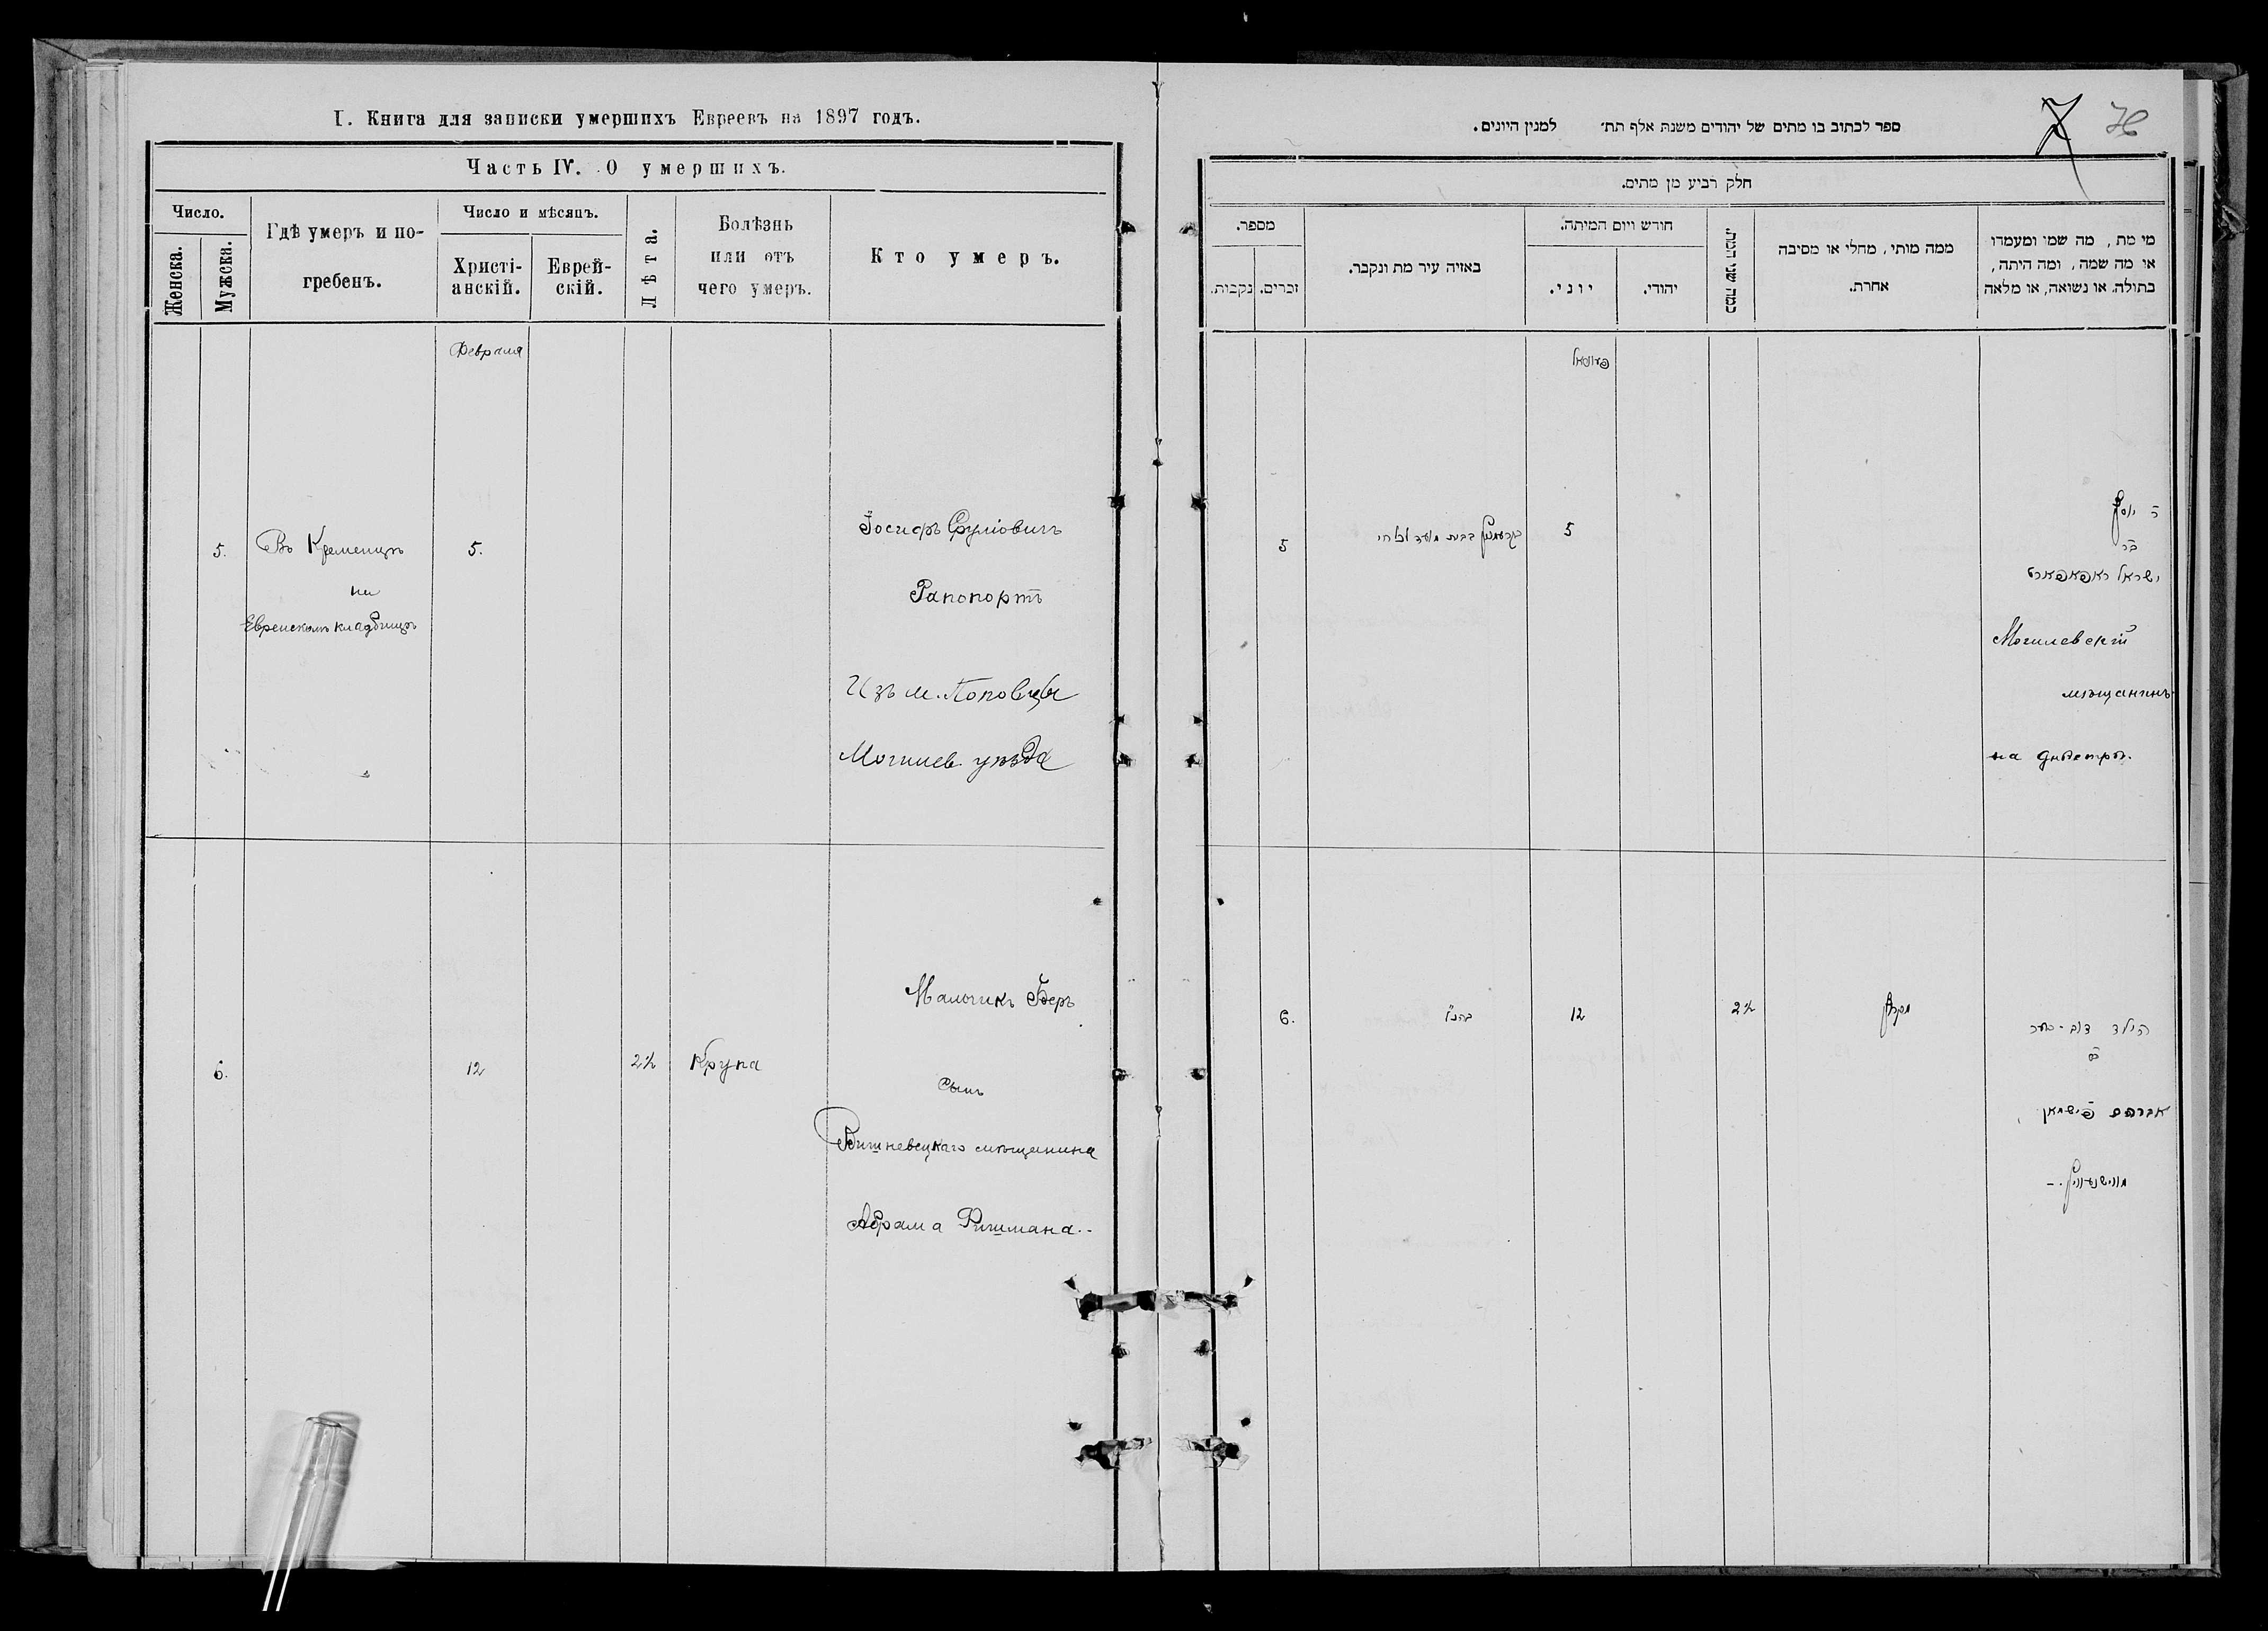 I. Книга для записки умершихъ Евреевъ на 1897 годъ.
Часть IV. О умершихъ.
Число.
Женска.
Мужска.
Гдѣ умеръ и по-
гребенъ.
Число и мѣсяцъ.
Христі-
анскій.
Еврей-
скій.
Лѣта.
Болѣзнь
или отъ
чего умеръ.
Кто умеръ.
Февраля
5.
Въ Кременцѣ
на
Еврейскомъ кладбищѣ
5.
Іосифъ Сруліовичъ
Рапопортъ
Изъ м. Поповцы
Могилев. уѣзда
6.
12
2½
Крупа
Мальчикъ Беръ
Сынъ
Вишневецкаго мѣщанина
Абрама Фишмана.
ספר לכתוב בו מתים של יהודים משנת אלף תת׳ למנין היונים.
7
חלק רביע מן מתים.
מספר.
נקבות.
זכרים.
באזיה עיר מת ונקבר.
חודש ויום המיתה.
יוני.
יהודי.
כמה שני המת.
ממה מותי, מחלי או מסיבה
אחרת.
מי מת, מה שמו ומעמדו
או מה שמה, ומה היתה,
בתולה. או נשואה, או מלאה
5
5
ר׳ יוסף
בר
ישראל ראפאפארט
Могилевскій
мѣщанинъ
на Днѣстрѣ.
6.
12
2½
הילד דוב-בער
אברהם פישמאן